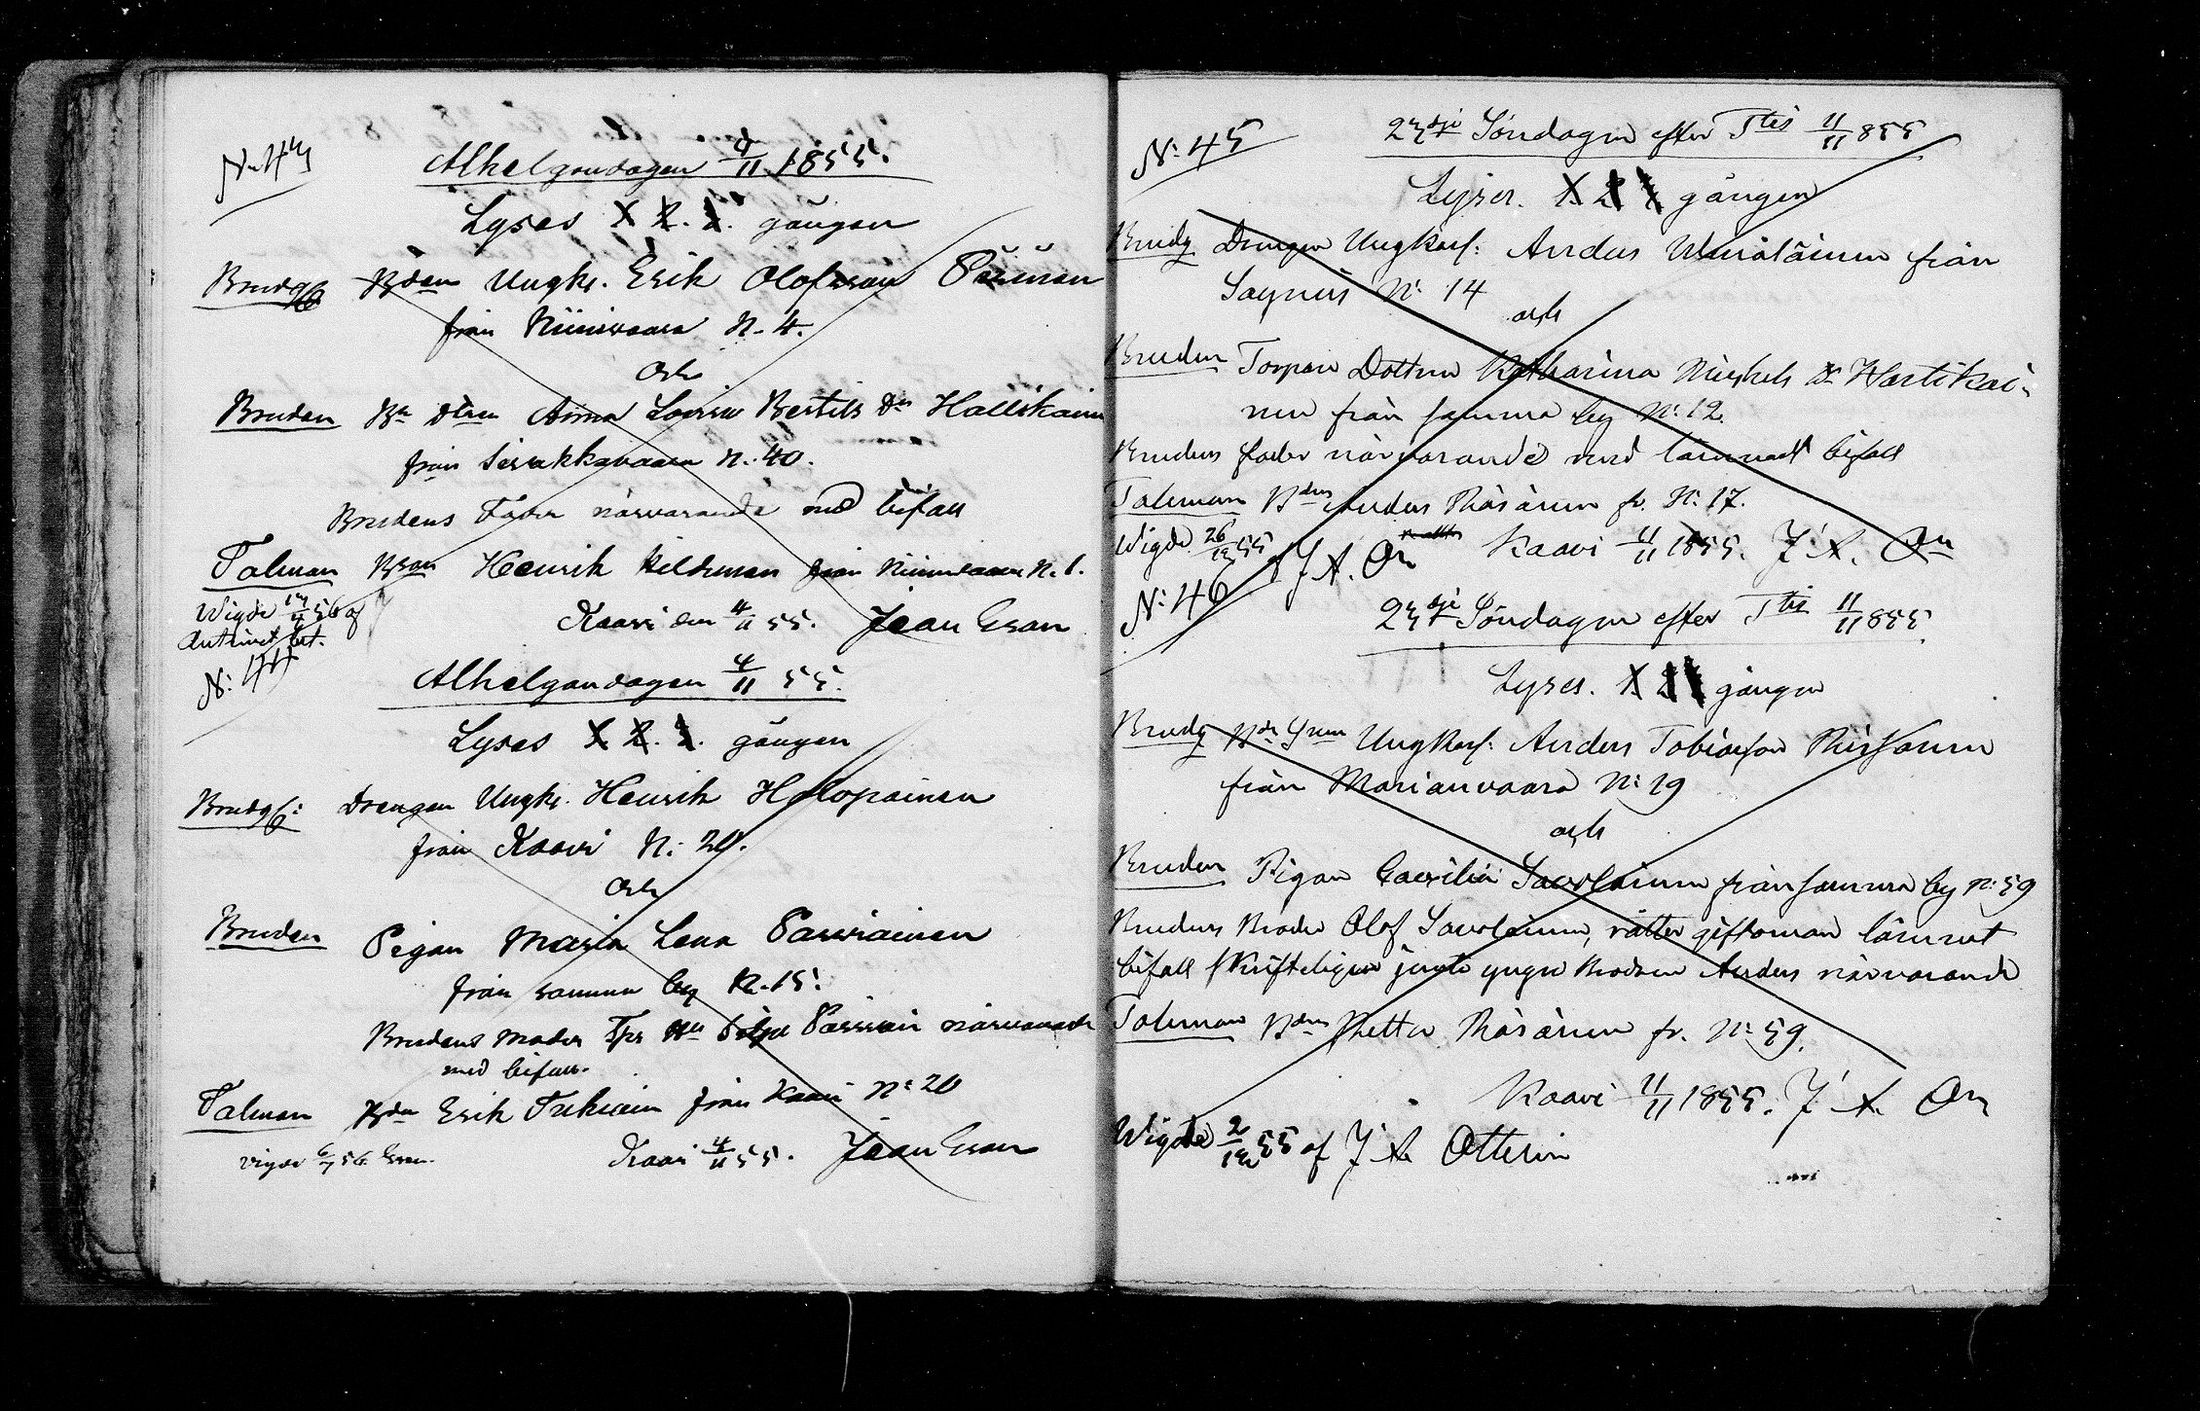 N. 43
Alhelgondagen 4/11 1855.
Lyses 1. 2. 3. gången
Brudg. Bden Ungk. Erik Olofsson
från Niinivaara N. 4.
Och
Bruden Bn dtren Anna Lovisa Bertils Dr Hallikain
från Sivakkavaara N. 40.
Brudens Fader närvarande med bifall
Talman Bson Henrik från Niinivaara N. 1.
Wigde 56 af
Kaavi den 4/11 55. Jean Esan
N: 44
Alhelgondagen 4/11 55.
Lyses 1. 2. 3. gången
Brudg: Drengen Ungk. Henrik Holopainen
från Kaavi N: 20.
Och
Bruden Pigan Maria Lena Parviainen
från samma by N. 15:
Brudens moder närvarande
med bifall.
Talman Bdn Erik från Kaavi N: 20
vigde 6/7 56 Esan.
Kaavi 4/11 55. Jean Esan
N: 45
23dje Söndagen efter Ttis 11/11 855
Lyses. 1. 2 3 gången
Brudg Drengen Ungkarl: Anders från
N: 14
och
Bruden Torpare Dottren Katharina Michels Dr Wartikai-
nen från samma by N: 12.
Brudens fader närvarande med lämnadt bifall
Talman Bden Anders Räsänen fr. N: 17.
Wigde 26/12 55 J A. On
Kaavi 11/11 1855. J. A. On
N: 46
23dje Söndagen efter Ttis 11/11 855.
Lyses. 1. 2 3 gången
Brudg Ungkarl: Anders Tobiasson
från Marianvaara N: 19
och
Bruden Pigan Caecilia Savolainen från samma by N: 59
Brudens Broder Olof Savolainen, rätter giftoman lämnat
bifall skrifteligen jemte yngre Brodren Anders närvarande
Talman Bden Petter Räsänen fr. N: 59.
Kaavi 11/11 1855. J. A. On
Wigde 2/12 55 af J A. Ottelin